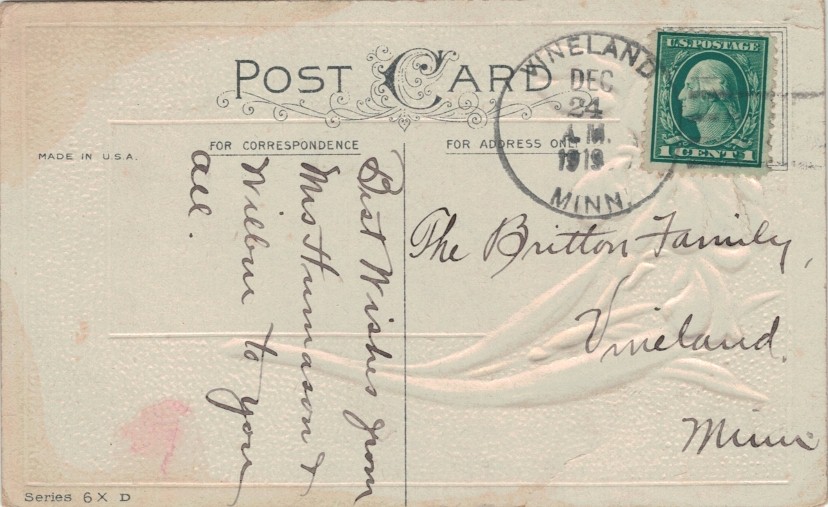 POST CARD
FOR CORRESPONDENCE
FOR ADDRESS ONLY
MADE IN U.S.A.
VINELAND
DEC
24
A.M.
1919
MINN.
U.S. POSTAGE
1 CENT 1
Best Wishes from
Mrs Humason &
Wilbur to you
all.
The Britton Family,
Vineland,
Minn
Series 6 X D